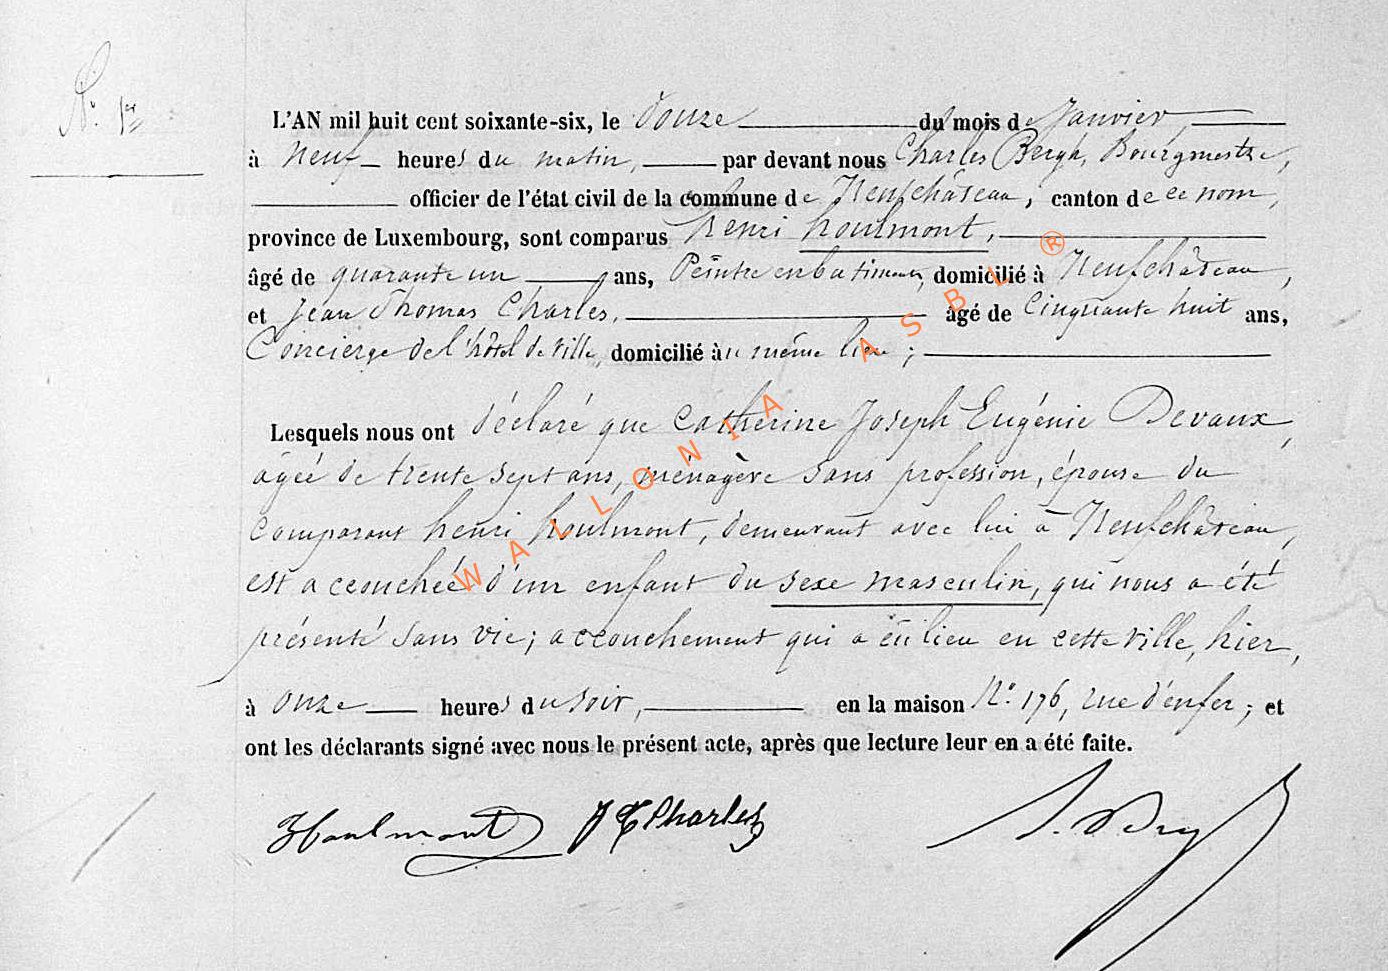 N.° 1er
L'AN mil huit cent soixante-six, le douze du mois de Janvier,
à neuf heures du matin, par devant nous Charles Bergh, Bourgmestre,
officier de l'état civil de la commune de Neufchâteau, canton de ce nom,
province de Luxembourg, sont comparus henri houlmont,
âgé de quarante un ans, Peintre en batiments, domicilié à Neufchâteau,
et Jean Thomas Charles, âgé de Cinquante huit ans,
Concierge de l'hôtel de ville, domicilié au même lieu ;
Lesquels nous ont déclaré que Catherine Joseph Eugénie Devaux,
agéé de trente sept ans, ménagère sans profession, épouse du
comparant henri houlmont, demeurant avec lui à Neufchâteau,
est accouchée d'un enfant du sexe masculin, qui nous a été
présenté sans vie ; accouchement qui a eu lieu en cette ville, hier,
à onze heures du soir, en la maison N.° 176, rue d'enfer ; et
ont les déclarants signé avec nous le présent acte, après que lecture leur en a été faite.
Houlmont J T Charles
WALLONIA ASBL ®